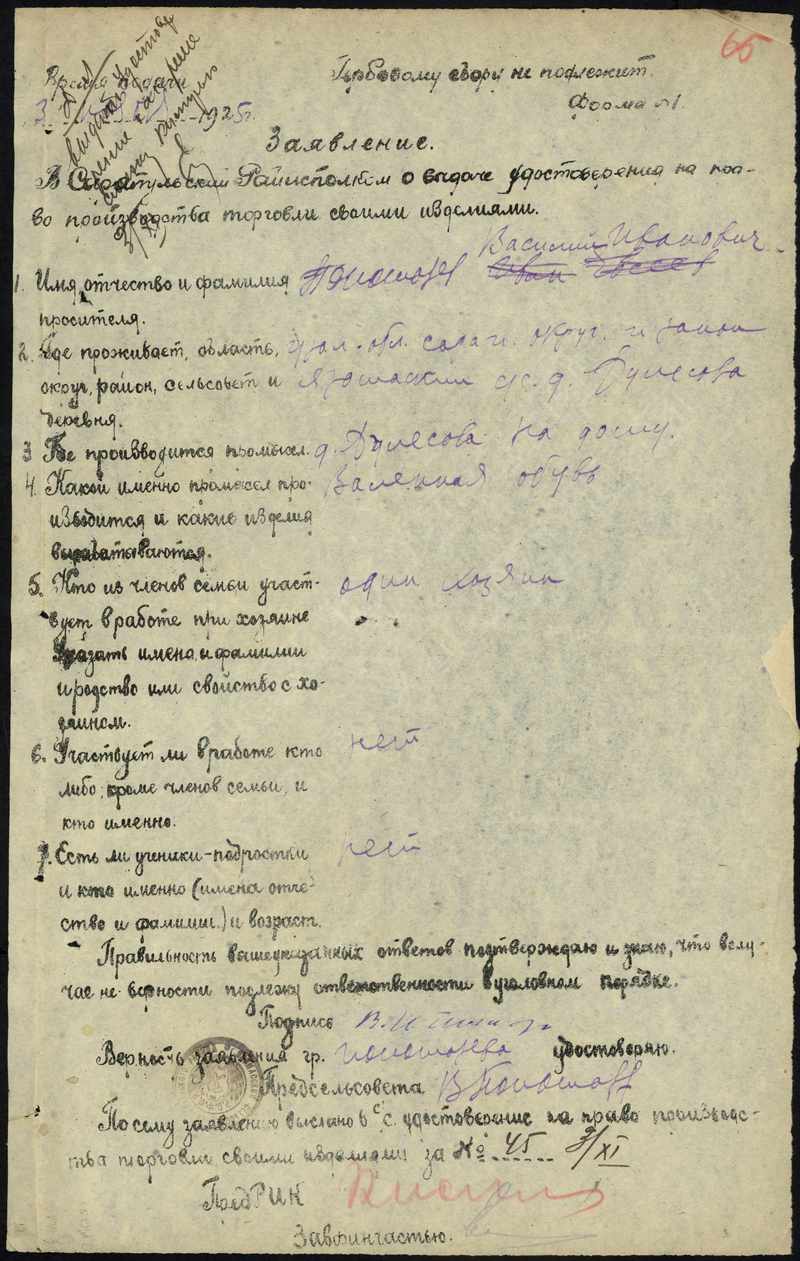 65
Время подачи
Гербовому сбору не подлежит.
3 1925 г.
Форма №1.
Заявление.
В Сарапульский Райисполком о выдаче удостоверения на пра-
во производства торговли своими изделиями.
Василий Иванович
1. Имя, отчество и фамилия
просителя.
2. Где проживает, область, Урал. обл. сарап. округ. и район
округ, район, сельсовет и с. д. Дулесова
деревня.
3 Где производится промысел. д. Дулесова на дому.
4. Какой именно промысел про- Валенная обувь
изводится и какие изделия
вырабатываются.
5. Кто из членов семьи участ- один хозяин
вует в работе при хозяине
Указать имена и фамилии
и родство или свойство с хо-
зяином.
6. Участвует ли в работе кто нет
либо, кроме членов семьи, и
кто именно.
7. Есть ли ученики-подростки нет
и кто именно (имена отче-
ство и фамилии.) и возраст.
Правильность вышеуказанных ответов подтверждаю и знаю, что в слу-
чае не верности подлежу ответственности в уголовном порядке.
Подпись
Верность заявления гр. удостоворяю.
Предсельсовета
По сему заявлению выслано в с. с. удостоверение на право производс-
тва торговли своими изделиями за № 45 3/XI
ПредРИК
Завфинчастью.